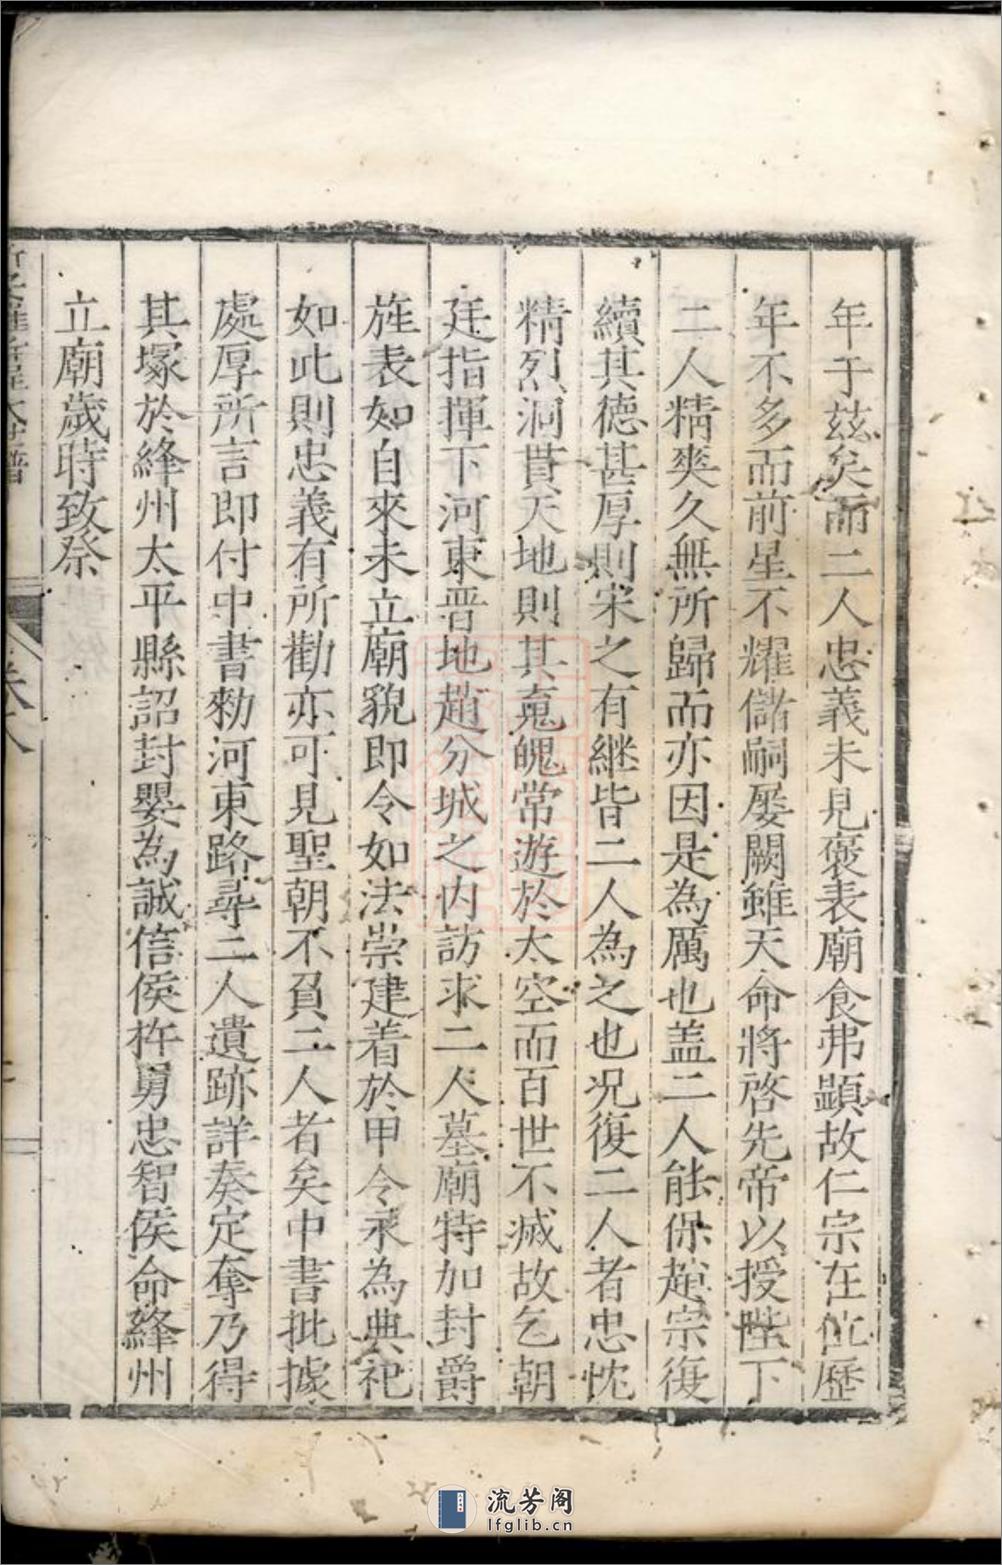 年于茲矣而二人忠義未見褒表廟食弗顯故仁宗在位歷
年不多而前星不耀儲嗣屡闕雖天命將啓先帝以授陛下
二人精爽久無所歸而亦因是為厲也盖二人能保趙宗復
續其德甚厚則宋之有継皆二人為之也况復二人者忠忱
精烈洞貫天地則其䰟魄常遊於太空而百世不滅故乞朝
廷指揮下河東晋地趙分城之内訪求二人墓廟特加封爵
旌表如自來未立廟貌即令如法崇建着於甲令永為典祀
如此則忠義有所勸亦可見聖朝不負二人者矣中書批據
處厚所言即付中書勑河東路尋二人遺跡詳奏定奪乃得
其塚於絳州太平縣詔封嬰為誠信侯杵臼忠智侯命絳州
立廟歲時致祭
卷八
流芳阁
lfglib.cn